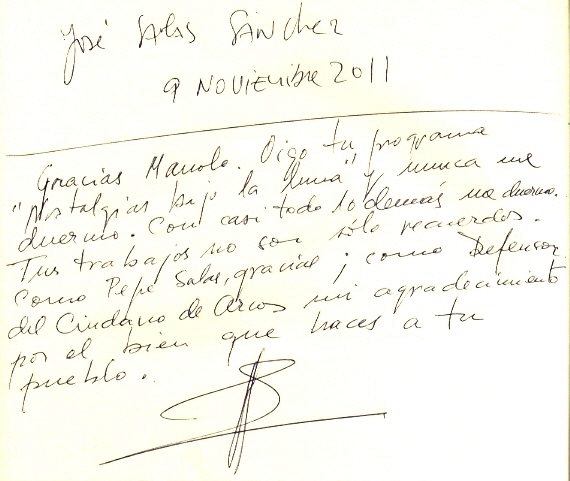 José Salas Sánchez
9 Noviembre 2011
Gracias Manolo. Oigo tu programa
"Nostalgias bajo la luna" y nunca me
duermo. Con casi todo lo demás me duermo.
Tus trabajos no son sólo recuerdos.
Como Pepe Salas, gracias; como Defensor
del Ciudano de Arcos mi agradecimiento
por el bien que haces a tu
pueblo.